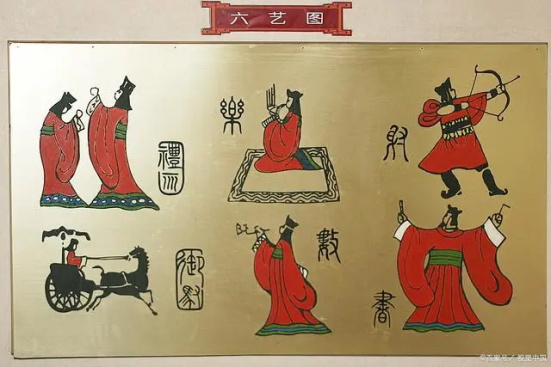 六艺图
禮
樂
射
御
數
書